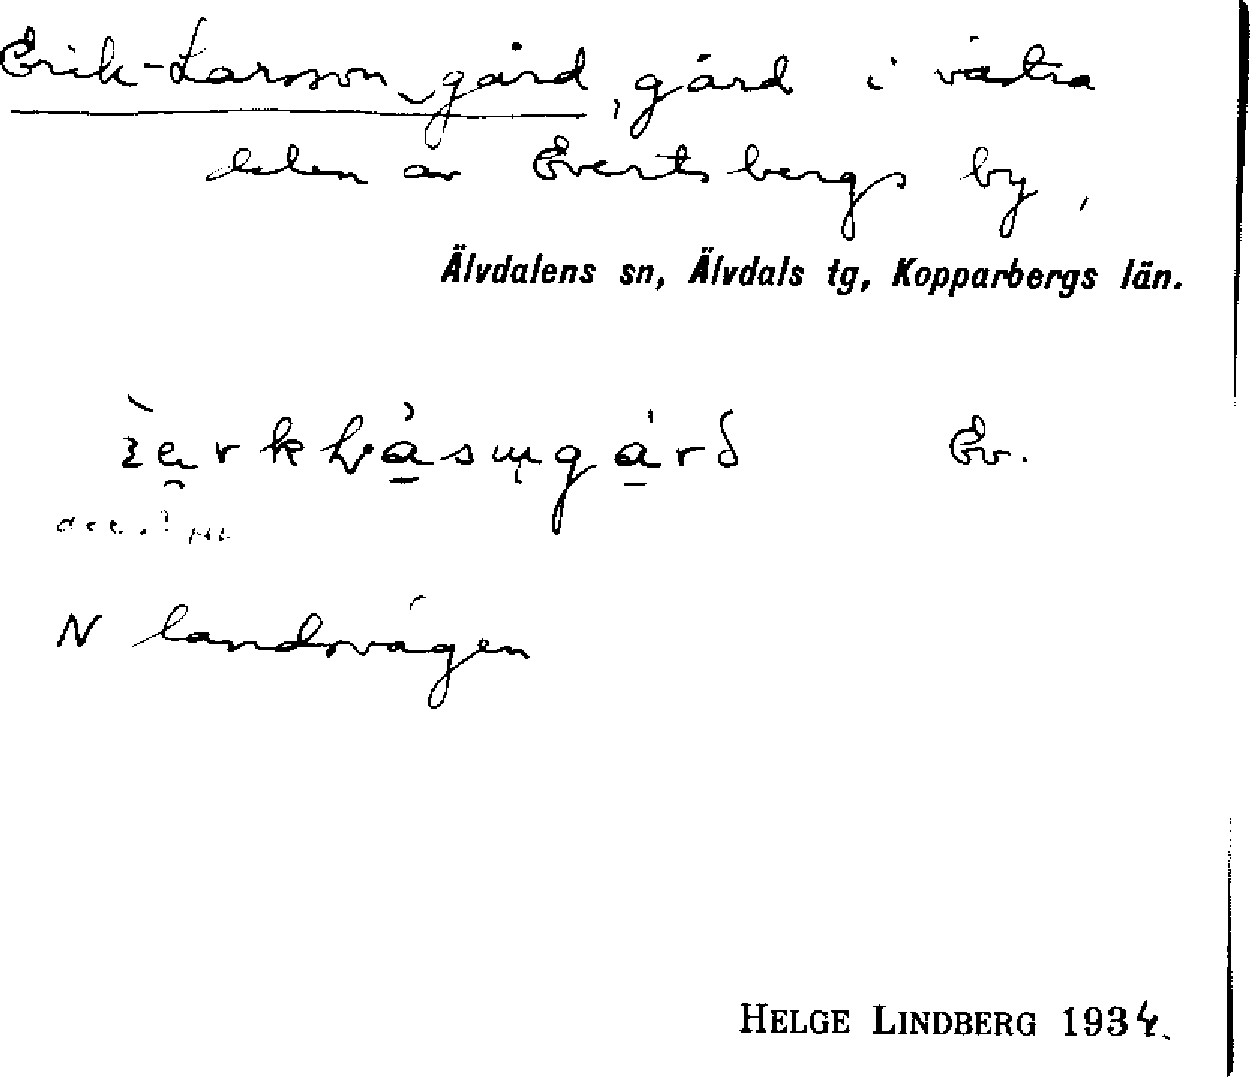 Erik-Larsson gård, gård i västra
delen av Evertsbergs by,
Älvdalens sn, Älvdals tg, Kopparbergs län.
Ev.
acc.?
N landsvägen
HELGE LINDBERG 1934.